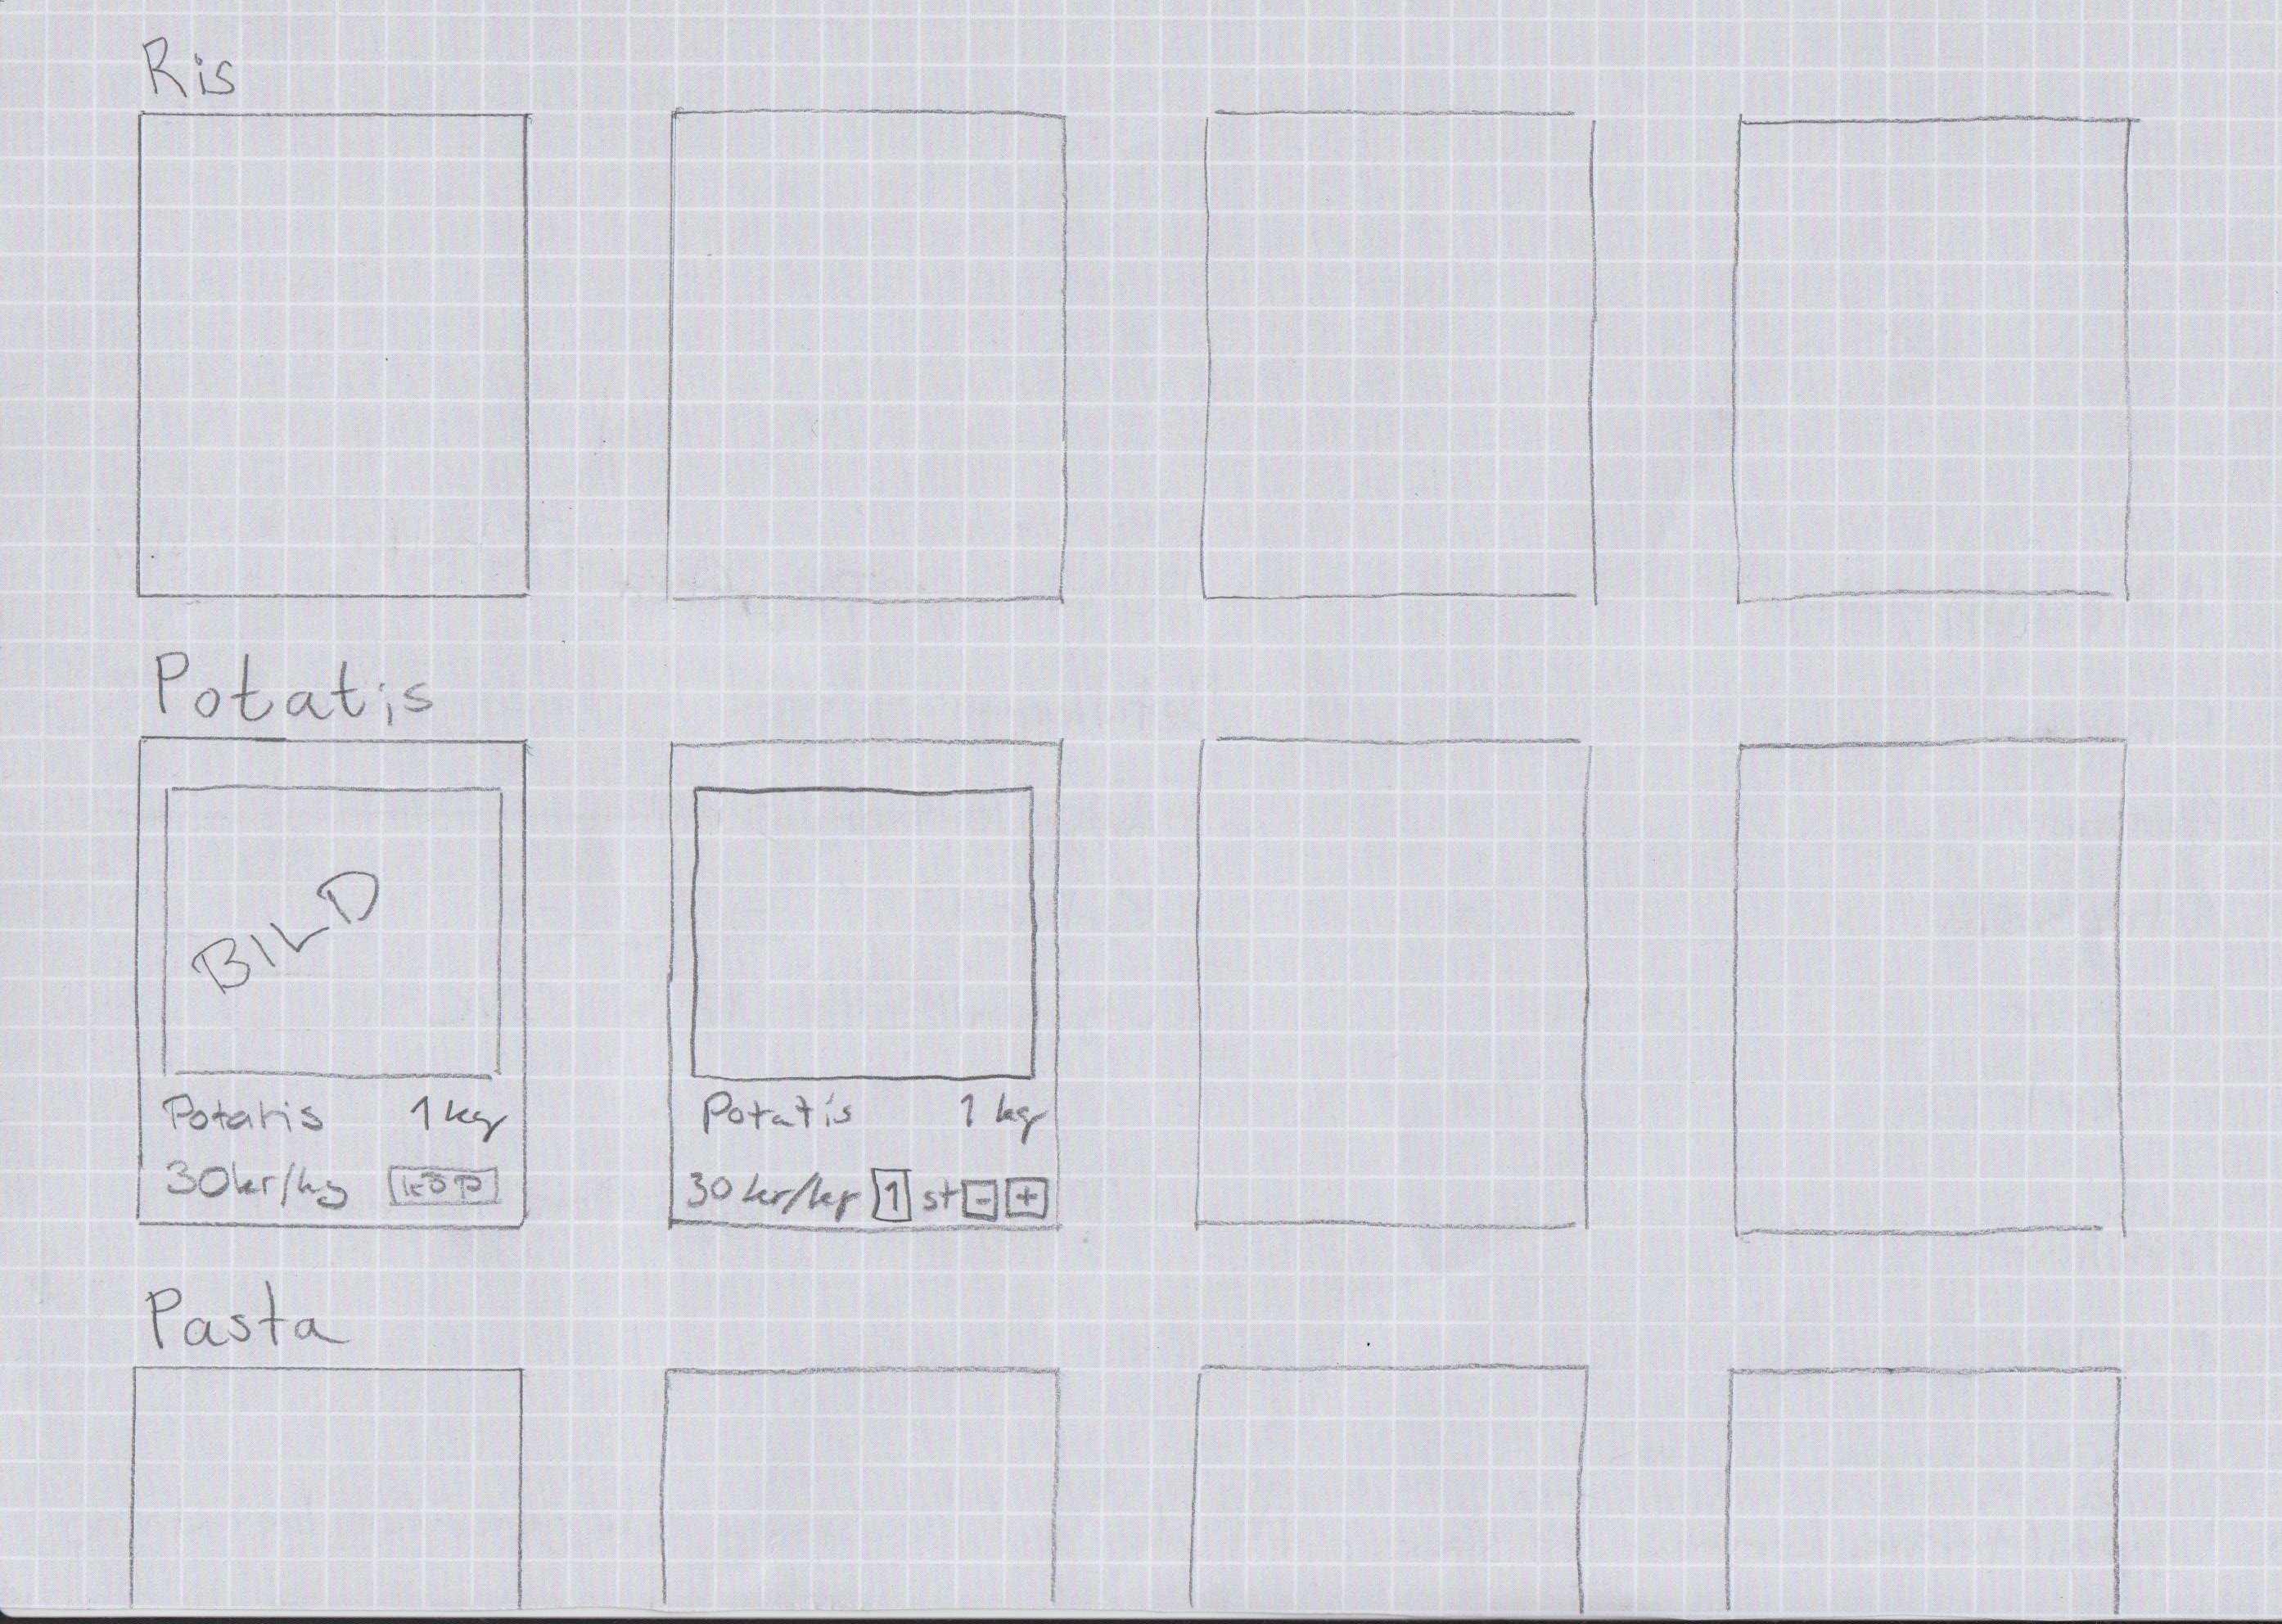 Ris
Potatis
BILD
Potatis 1 kg
30kr/kg KÖP
Potatis 1 kg
30 kr/kg 1 st - +
Pasta